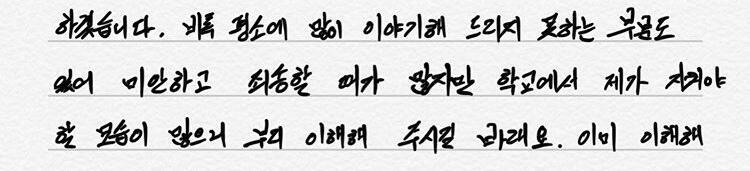 하겠습니다. 비록 평소에 많이 이야기해 드리지 못하는 부분도
있어 미안하고 죄송할 때가 많지만 학교에서 제가 지켜야
할 모습이 많으니 부디 이해해 주시길 바래요. 이미 이해해